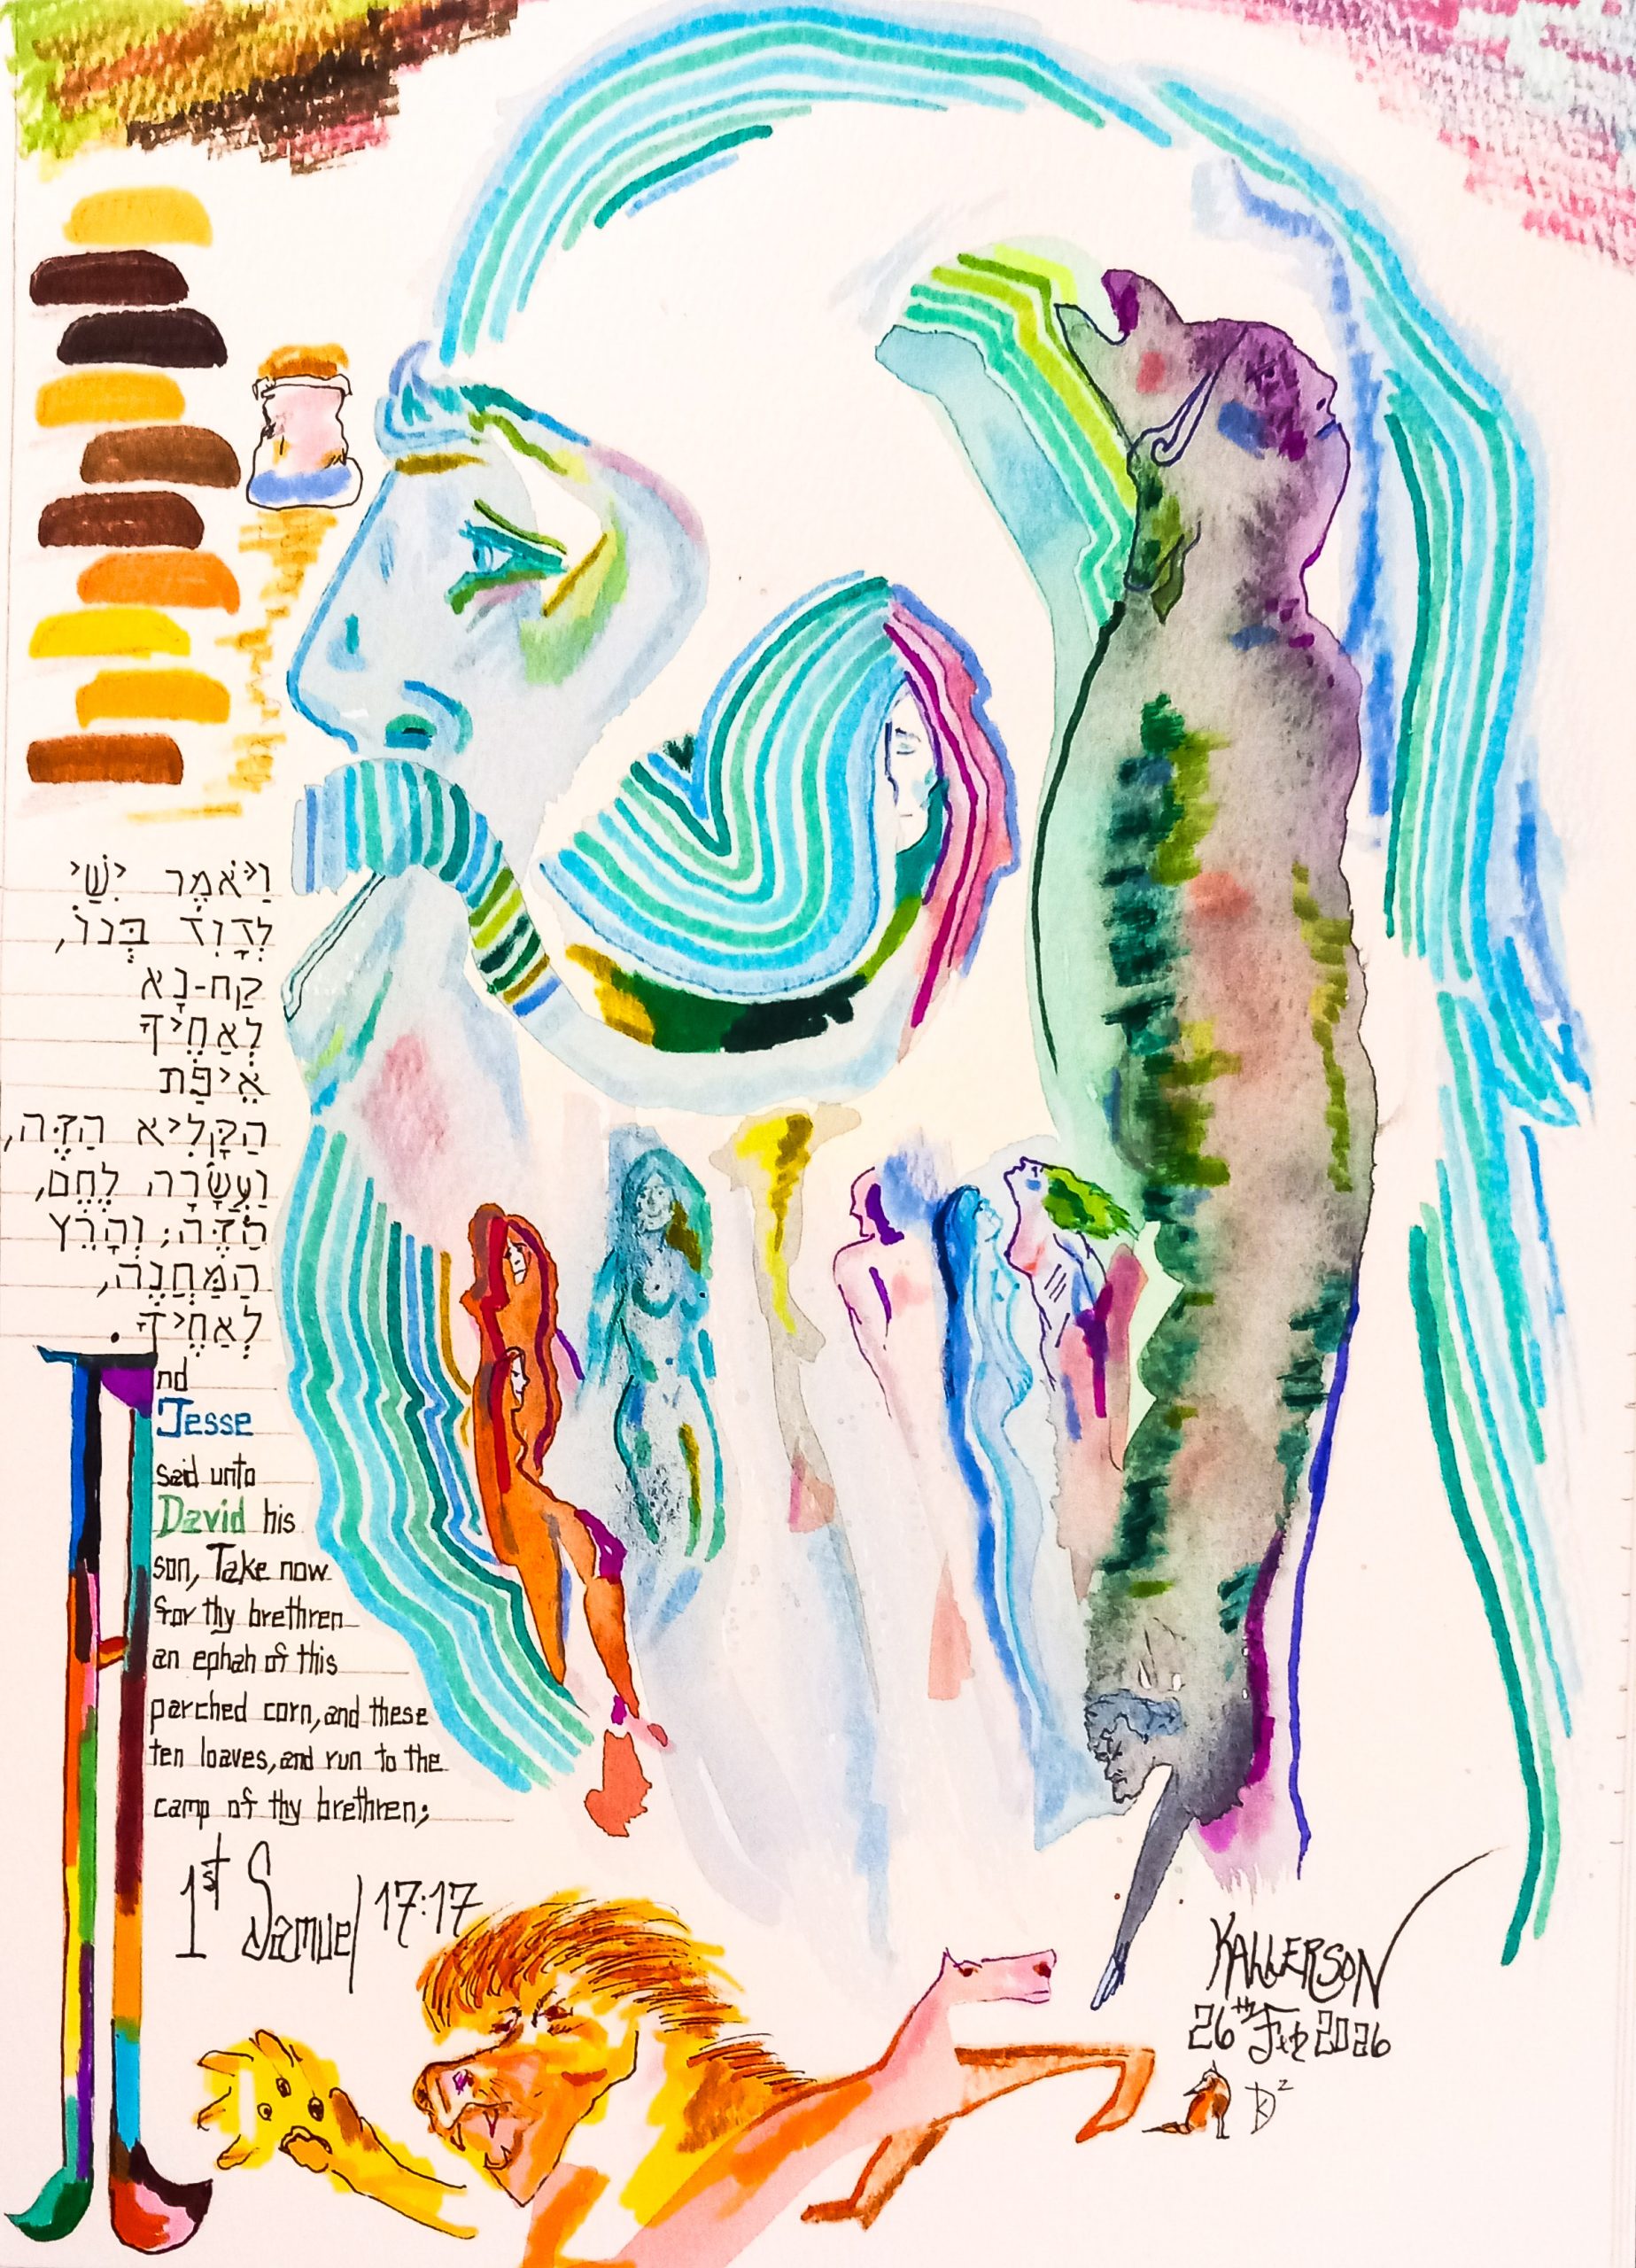 וַיֹּאמֶר יִשַׁי
לְדָוִד בְּנוֹ,
קַח-נָא
לְאַחֶיךָ
אֵיפַת
הַקָּלִיא הַזֶּה,
וַעֲשָׂרָה לֶחֶם,
הַזֶּה; וְהָרֵץ
הַמַּחֲנֶה,
לְאַחֶיךָ.
And
Jesse
said unto
David his
son, Take now
for thy brethren
an ephah of this
parched corn, and these
ten loaves, and run to the
camp of thy brethren;
1st Samuel 17:17
KALLERSON
26th Feb 2026